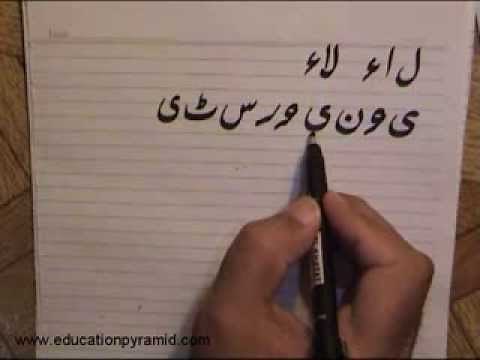 ل ا ء لاء
ی و ن ی و ر س ٹ ی
www.educationpyramid.com